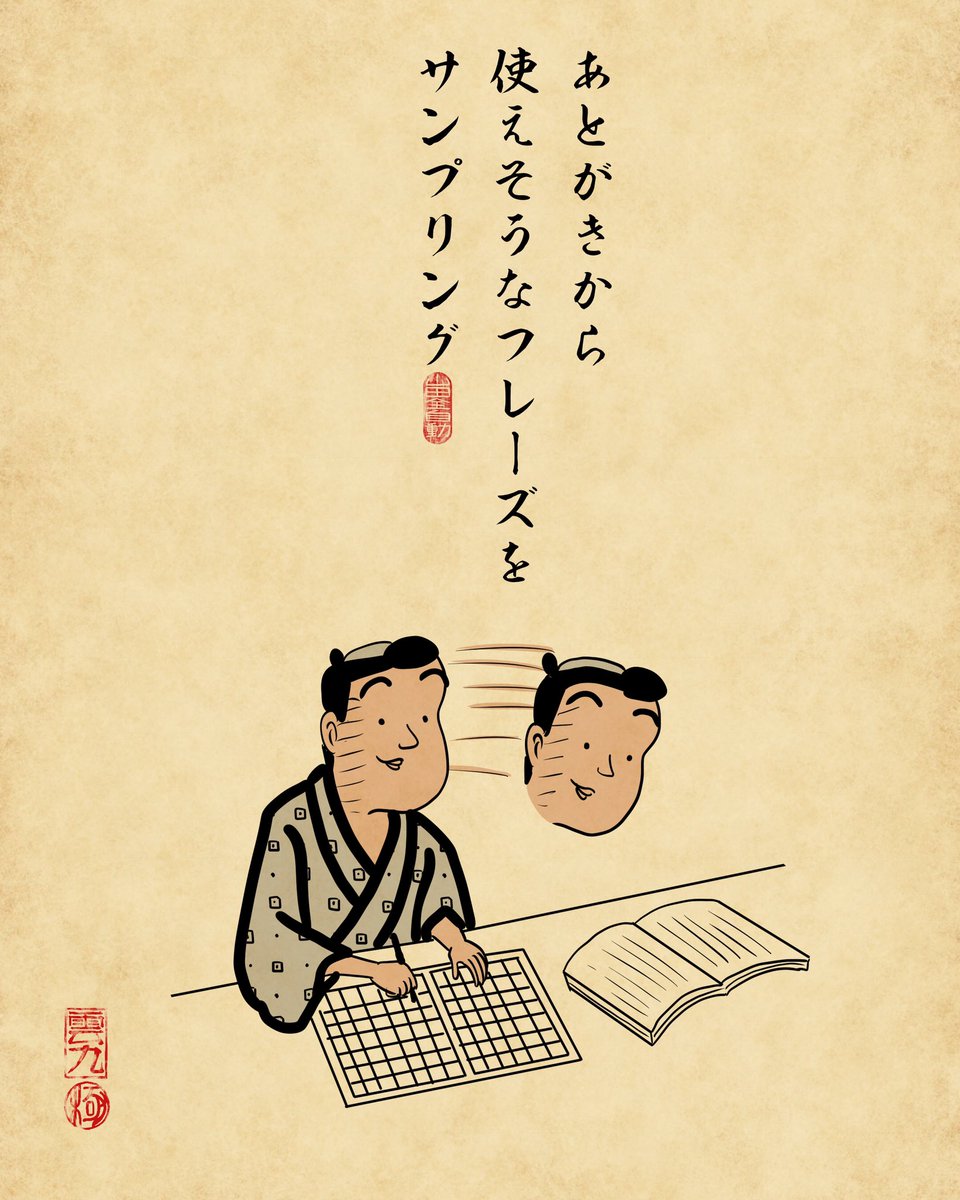 あとがきから
使えそうなフレーズを
サンプリング